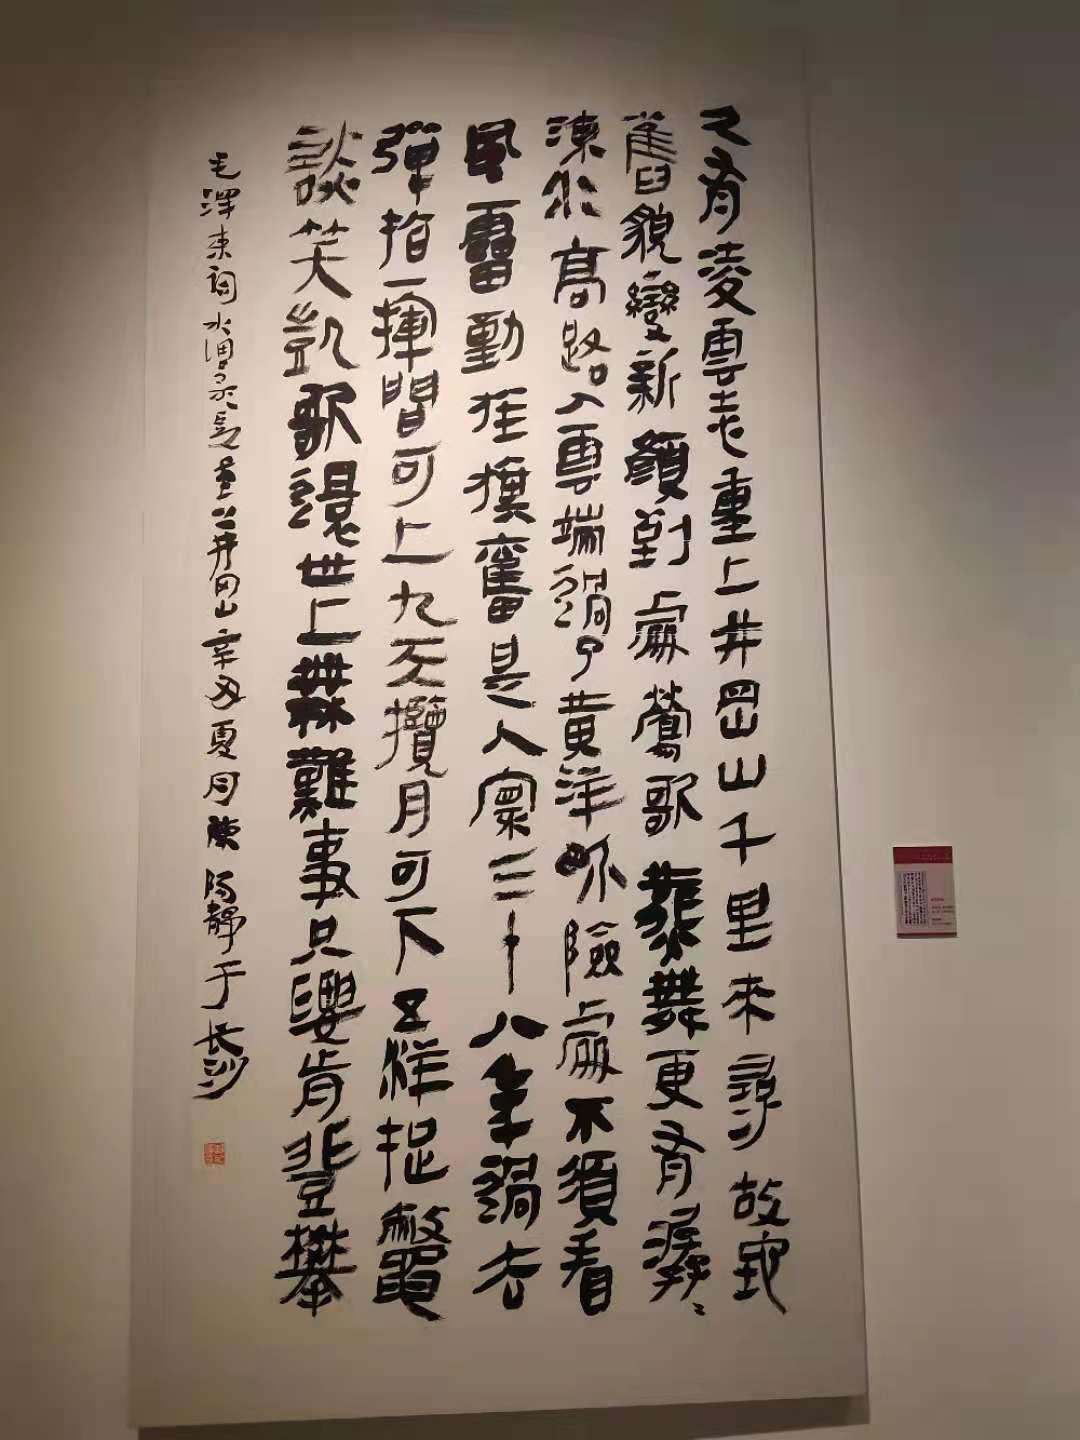 久有凌雲志重上井岡山千里來尋故地
舊貌變新顏到處鶯歌燕舞更有潺々
流水高路入雲端過了黃洋界險處不須看
風雷動旌旗奮是人寰三十八年過去
彈指一揮間可上九天攬月可下五洋捉鱉
談笑凱歌還世上無難事只要肯登攀
毛澤東詞水調歌頭重上井岡山辛丑夏月陳陽靜于長沙